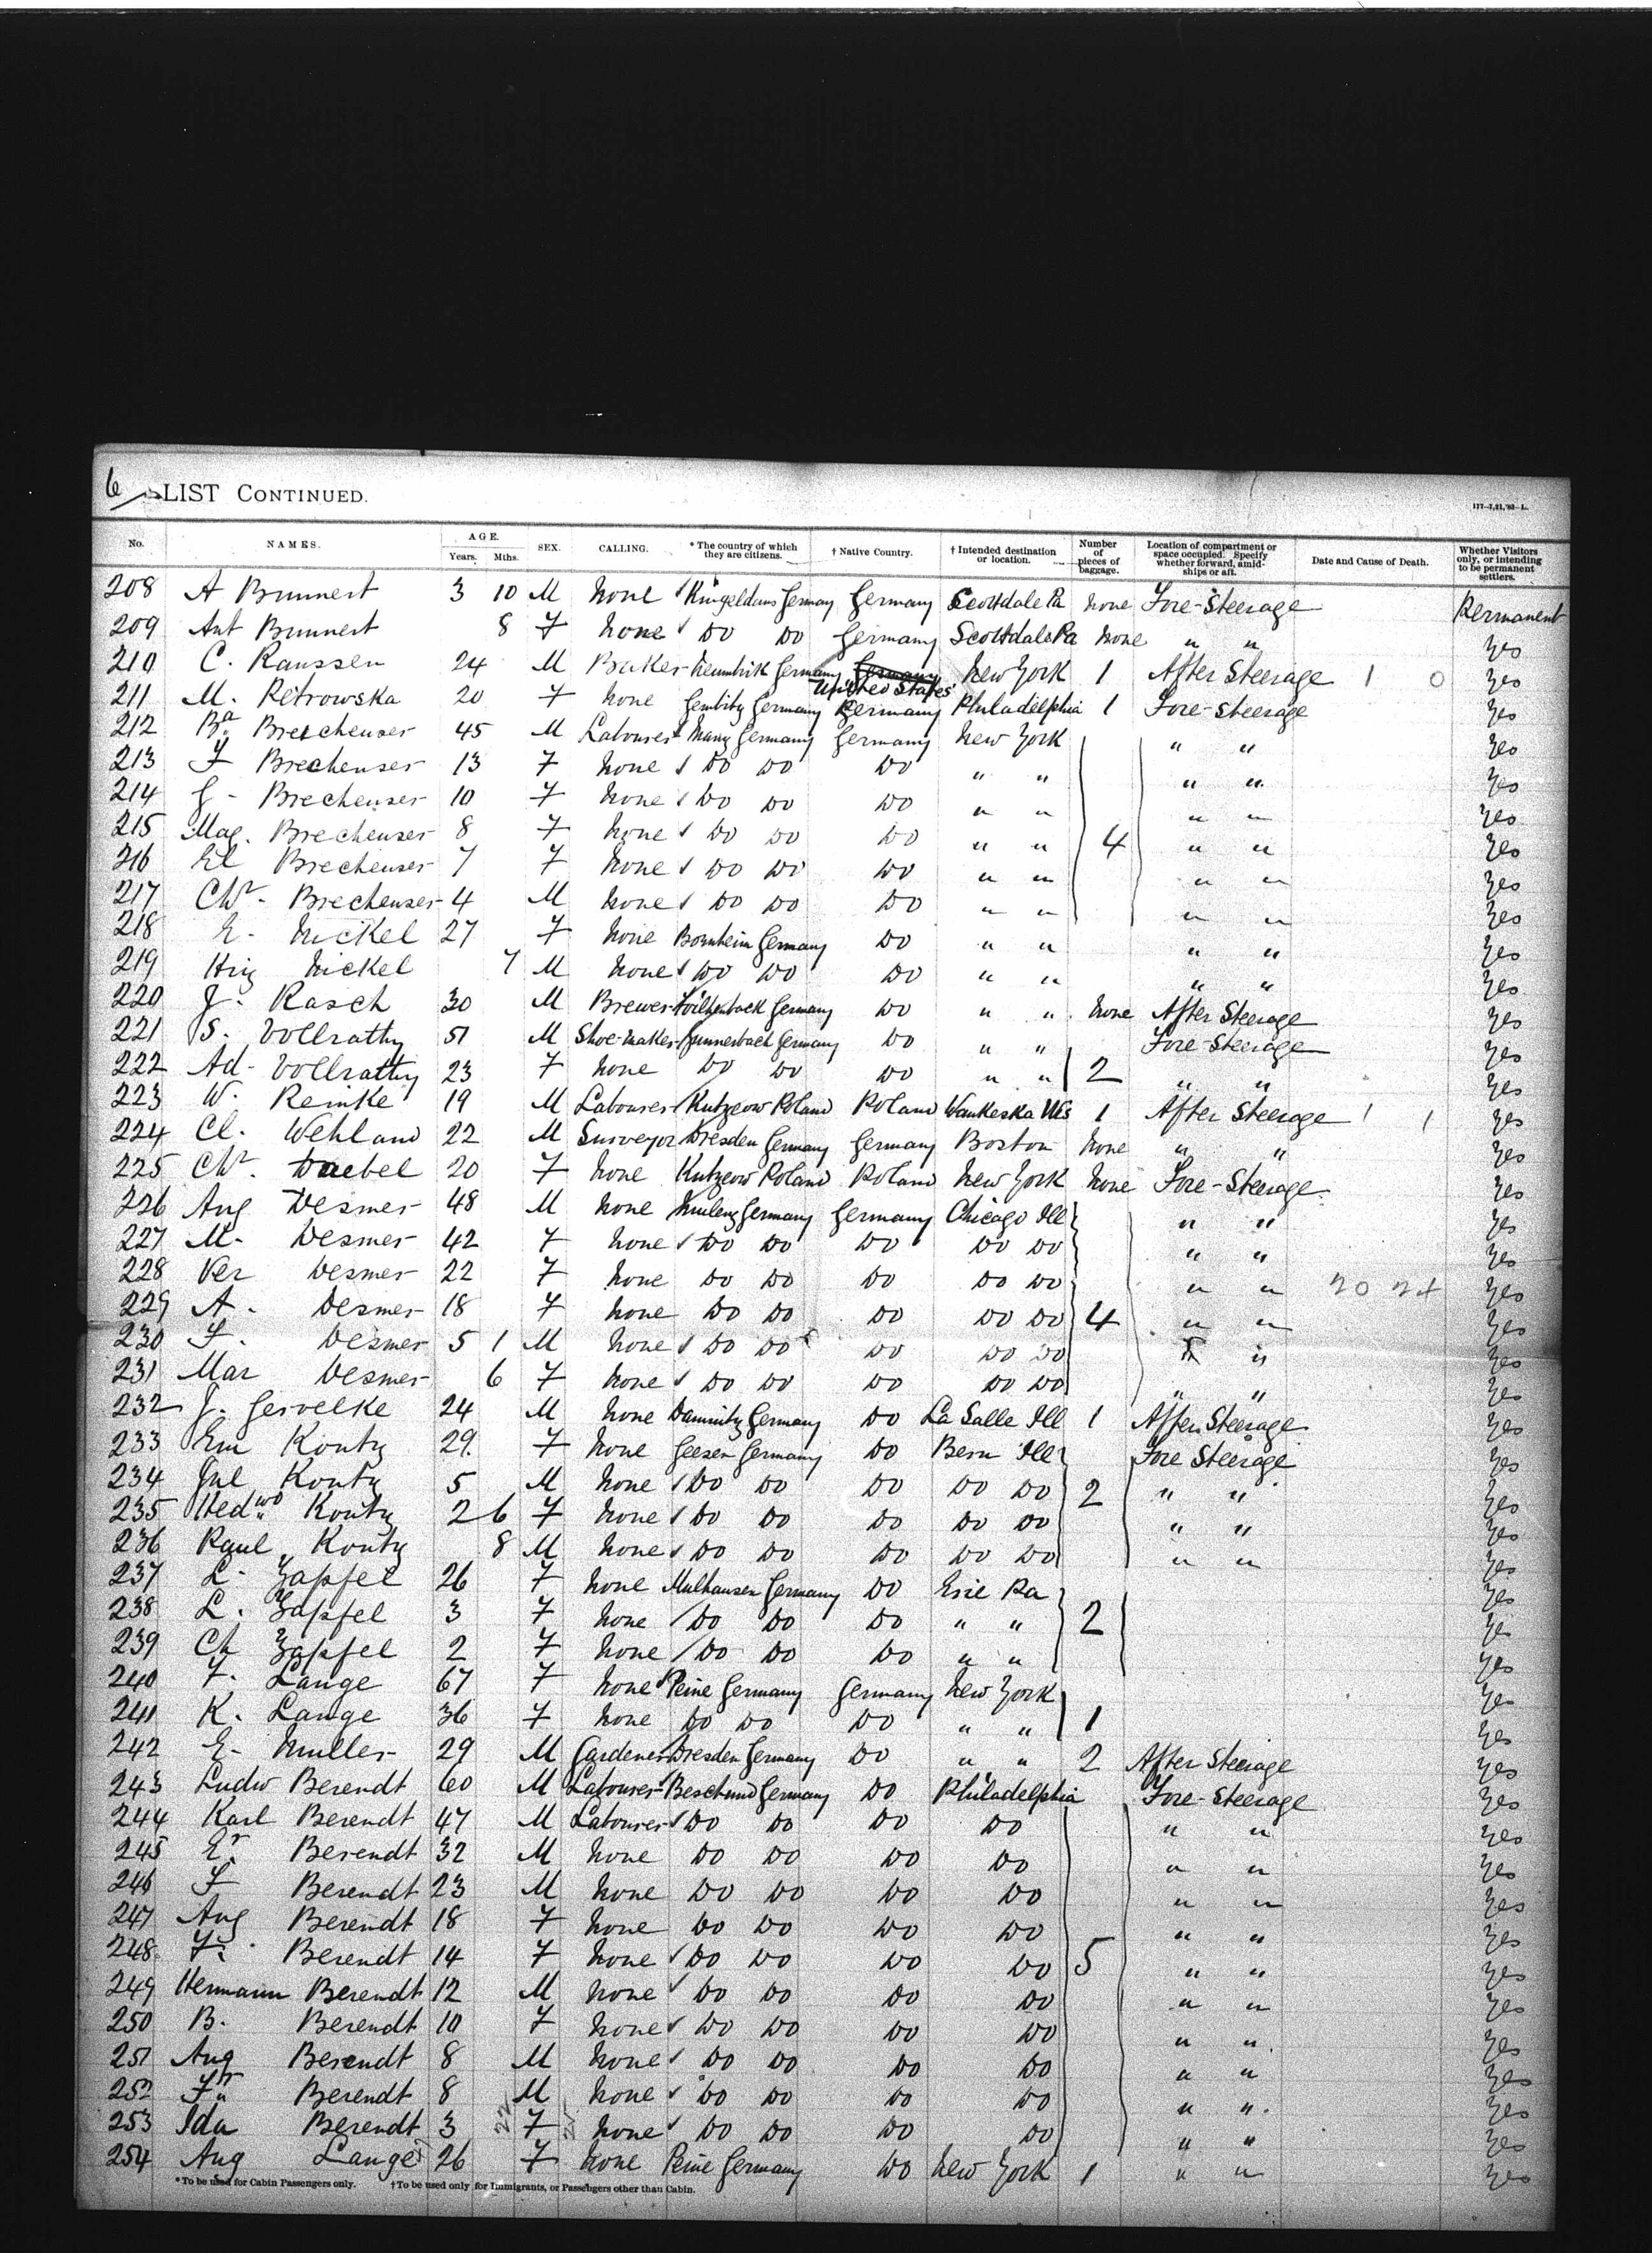 6 LIST CONTINUED.
177—7,21,'93—L.
No. NAMES. AGE. Years. Mths. SEX. CALLING. * The country of which they are citizens. † Native Country. † Intended destination or location. Number of pieces of baggage. Location of compartment or space occupied. Specify whether forward, amidships or aft. Date and Cause of Death. Whether Visitors only, or intending to be permanent settlers.
208 A Brunnert 3 10 M None Germany Germany Scottdale Pa None Fore-Steerage Permanent
209 Ant Brunnert 8 F None Do Do Germany Scottdale Pa None " " Yes
210 C. Raussen 24 M Baker Germany Germany United States New York 1 After Steerage 1 0 Yes
211 M. Petrowska 20 F None Gembitz Germany Germany Philadelphia 1 Fore-Steerage Yes
212 Ba Brechenser 45 M Labourer Germany Germany New York " " Yes
213 F Brechenser 13 F None Do Do Do " " " " Yes
214 G- Brechenser 10 F None Do Do Do " " " " Yes
215 Mag. Brechenser 8 F None Do Do Do " " 4 " " Yes
216 El Brechenser 7 F None Do Do Do " " " " Yes
217 Chr- Brechenser 4 M None Do Do Do " " " " Yes
218 E- Nickel 27 F None Bornheim Germany Do " " " " Yes
219 Nickel 7 M None Do Do Do " " " " Yes
220 J. Rasch 30 M Brewer Germany Do " " None After Steerage Yes
221 S. Vollrath 51 M Shoe-Maker Germany Do " " Fore-Steerage Yes
222 Ad- Vollrath 23 F None Do Do Do " " 2 " " Yes
223 W. Remke 19 M Labourer Kutzeow Poland Poland Waukeska Wis 1 After Steerage 1 1 Yes
224 Cl. Wehland 22 M Surveyor Dresden Germany Germany Boston None " " Yes
225 Chr. Daebel 20 F None Kutzeow Poland Poland New York None Fore-Steerage Yes
226 Aug Desmer 48 M None Germany Germany Chicago Ill " " Yes
227 M- Desmer 42 F None Do Do Do Do Do " " Yes
228 Ver Desmer 22 F None Do Do Do Do Do " " 20 24 Yes
229 A. Desmer 18 F None Do Do Do Do Do 4 " " Yes
230 F. Desmer 5 1 M None Do Do Do Do Do " " Yes
231 Mar Desmer 6 F None Do Do Do Do Do " " Yes
232 J. Gervelke 24 M None Germany Do La Salle Ill 1 After Steerage Yes
233 Em Kontz 29. F None Geesen Germany Do Bern Ill Fore Steerage Yes
234 Jul Kontz 5 M None Do Do Do Do Do 2 " " Yes
235 Hedwo Kontz 2 6 F None Do Do Do Do Do " " Yes
236 Paul Kontz 8 M None Do Do Do Do Do " " Yes
237 L- Zapfel 26 F None Mulhausen Germany Do Erie Pa Yes
238 L. Zapfel 3 F None Do Do Do " " 2 Yes
239 Ch Zapfel 2 F None Do Do Do " " Yes
240 F. Lange 67 F None Peine Germany Germany New York Yes
241 K. Lange 36 F None Do Do Do " " 1 Yes
242 E- Muller 29 M Gardener Dresden Germany Do " " 2 After Steerage Yes
243 Ludw Berendt 60 M Labourer Germany Do Philadelphia Fore-Steerage Yes
244 Karl Berendt 47 M Labourer Do Do Do Do " " Yes
245 Er. Berendt 32 M None Do Do Do Do " " Yes
246 F Berendt 23 M None Do Do Do Do " " Yes
247 Aug Berendt 18 F None Do Do Do Do " " Yes
248 Fr. Berendt 14 F None Do Do Do Do 5 " " Yes
249 Hermann Berendt 12 M None Do Do Do Do " " Yes
250 B. Berendt 10 F None Do Do Do Do " " Yes
251 Aug Berendt 8 M None Do Do Do Do " " Yes
252 Fr. Berendt 8 M None Do Do Do Do " " Yes
253 Ida Berendt 3 F None Do Do Do Do " " Yes
254 Aug Lange 26 F None Peine Germany Do New York 1 " " Yes
* To be used for Cabin Passengers only. † To be used only for Immigrants, or Passengers other than Cabin.